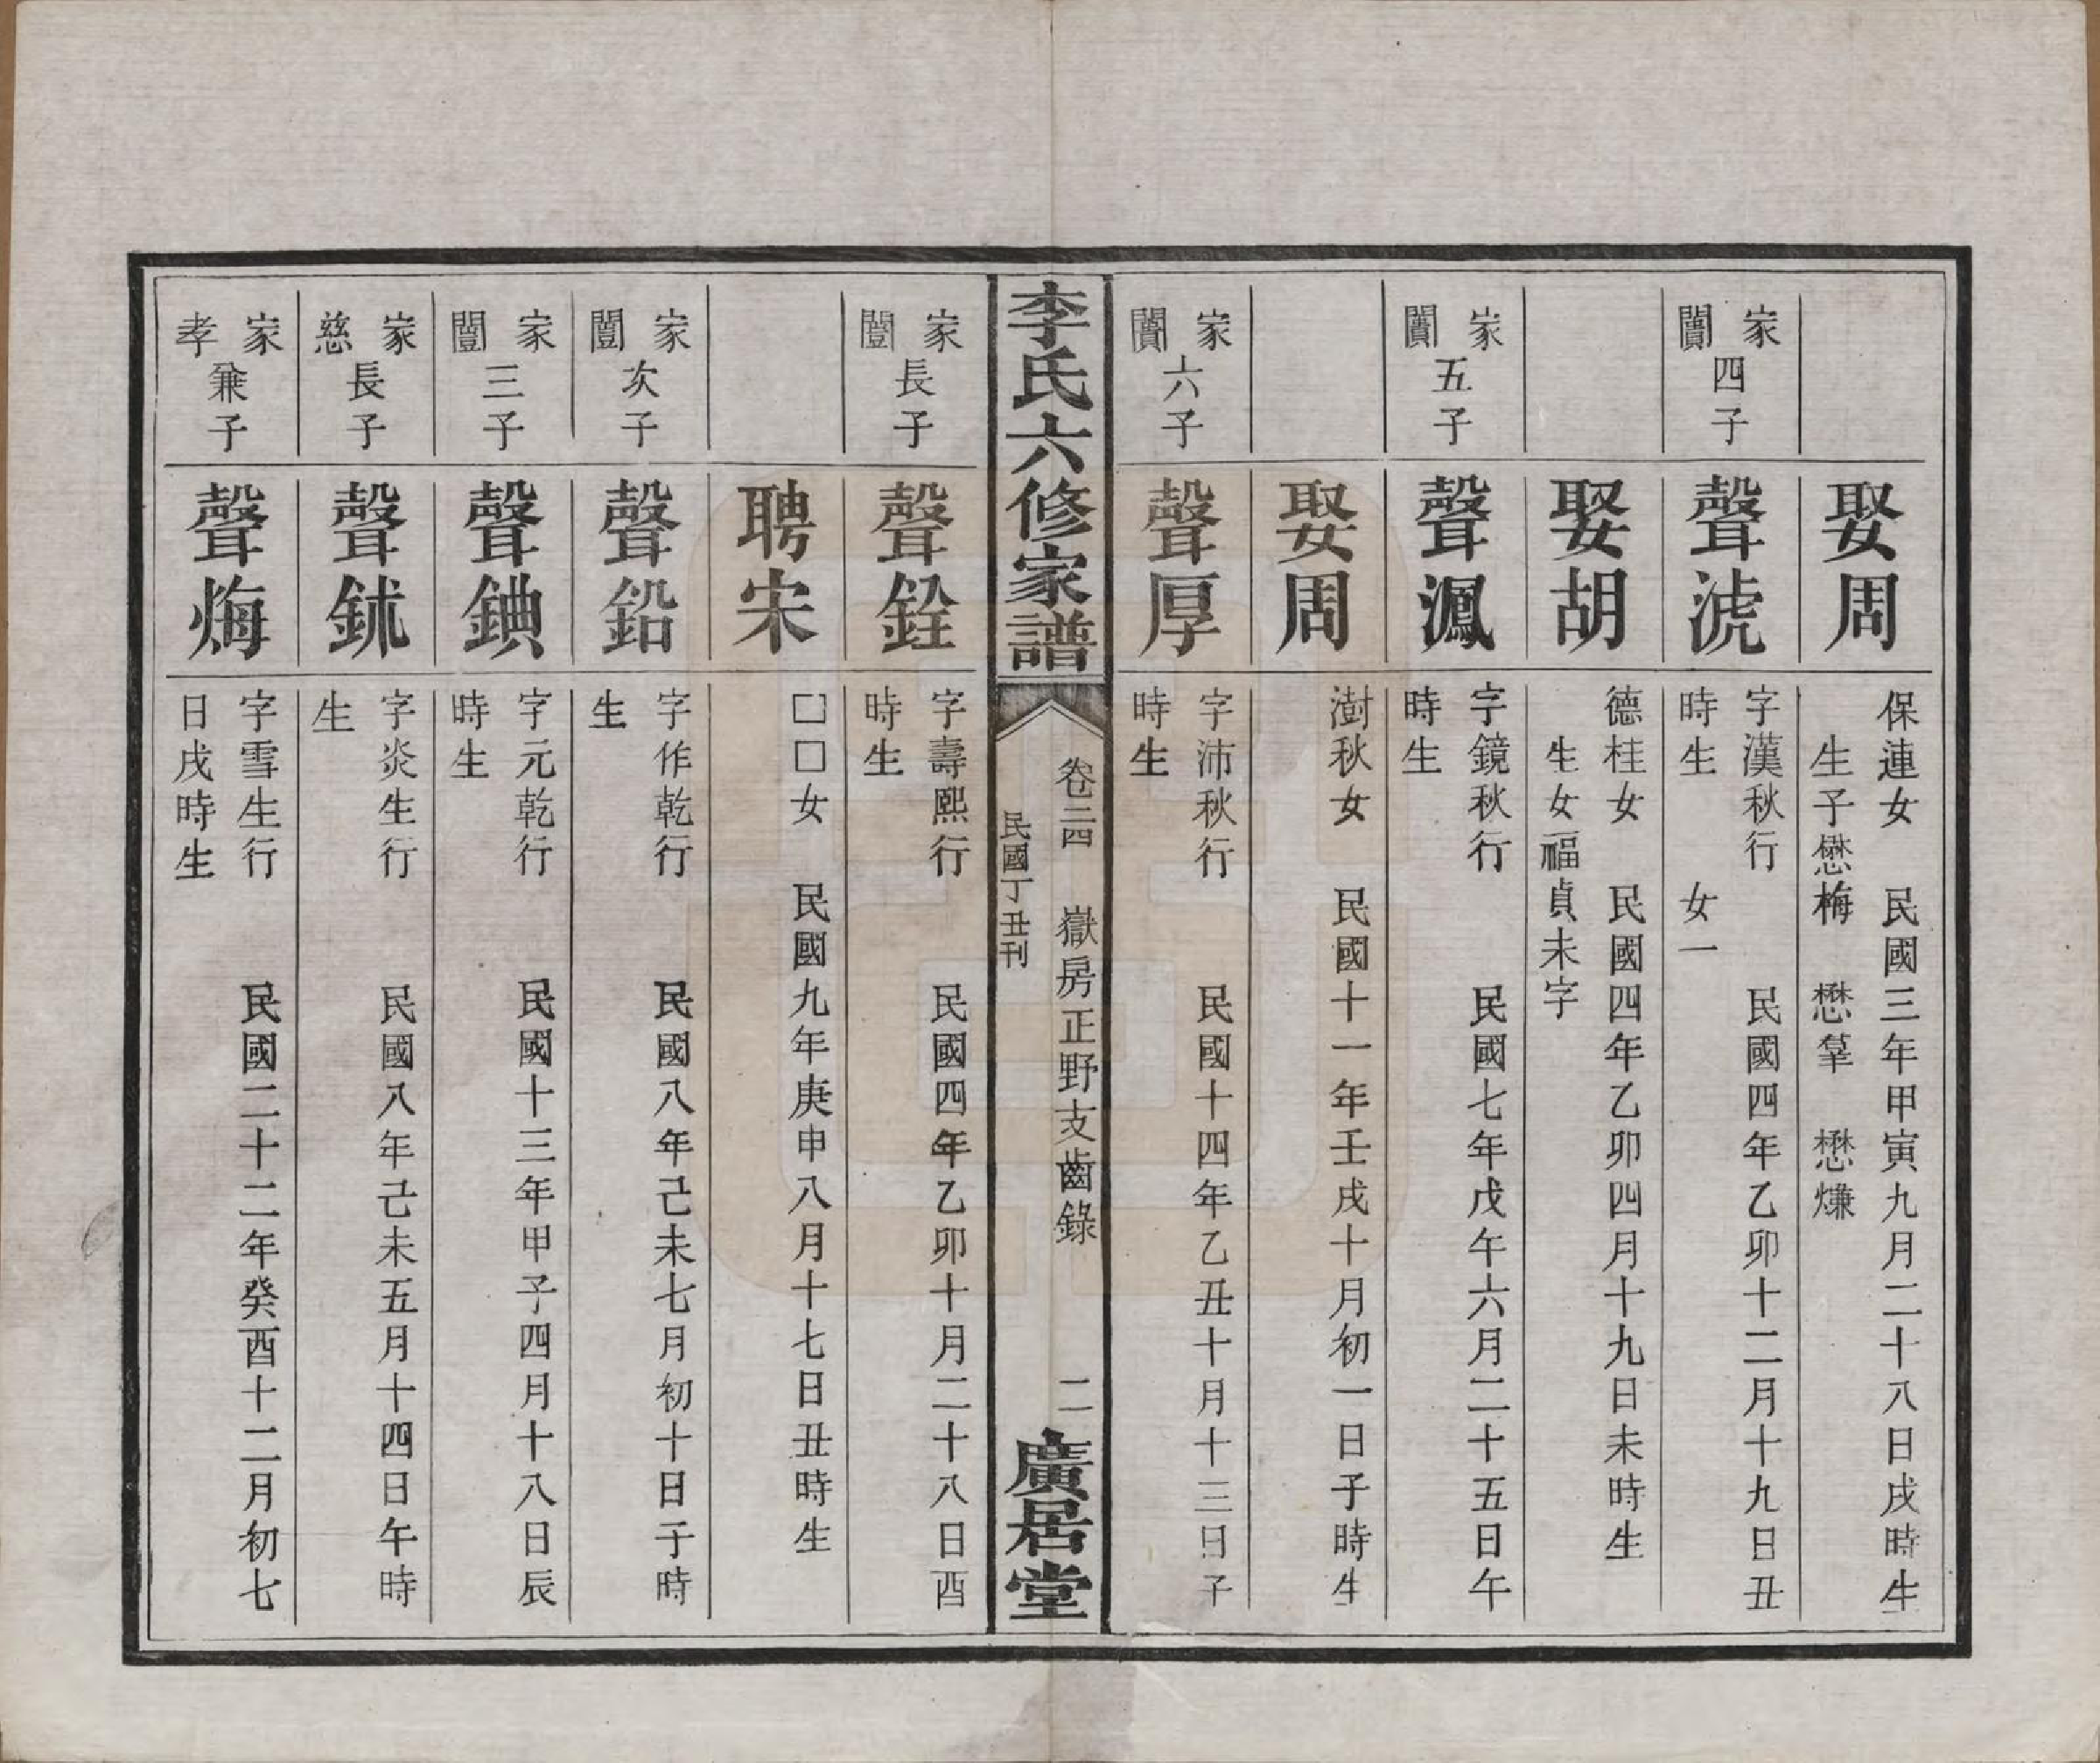 娶周
保連女　民國三年甲寅九月二十八日戌時生
生子懋梅　懋䇹　懋熑
家四子
聲淲
字漢秋行　民國四年乙卯十二月十九日丑
時生　女一
娶胡
德桂女　民國四年乙卯四月十九日未時生
生女福貞未字
家五子
聲㵯
字鏡秋行　民國七年戊午六月二十五日午
時生
娶周
澍秋女　民國十一年壬戌十月初一日子時生
家六子
聲厚
字沛秋行　民國十四年乙丑十月十三日子
時生
李氏六修家譜
卷三四　嶽房正野支齒錄　二
民國丁丑刊
廣居堂
家闓長子
聲銓
字壽熙行　民國四年乙卯十月二十八日酉
時生
聘宋
□□女　民國九年庚申八月十七日丑時生
家闓次子
聲鉛
字作乾行　民國八年己未七月初十日子時
生
家闓三子
聲錪
字元乾行　民國十三年甲子四月十八日辰
時生
家慈長子
聲鉥
字炎生行　民國八年己未五月十四日午時
生
家孝兼子
聲烸
字雪生行　民國二十二年癸酉十二月初七
日戌時生